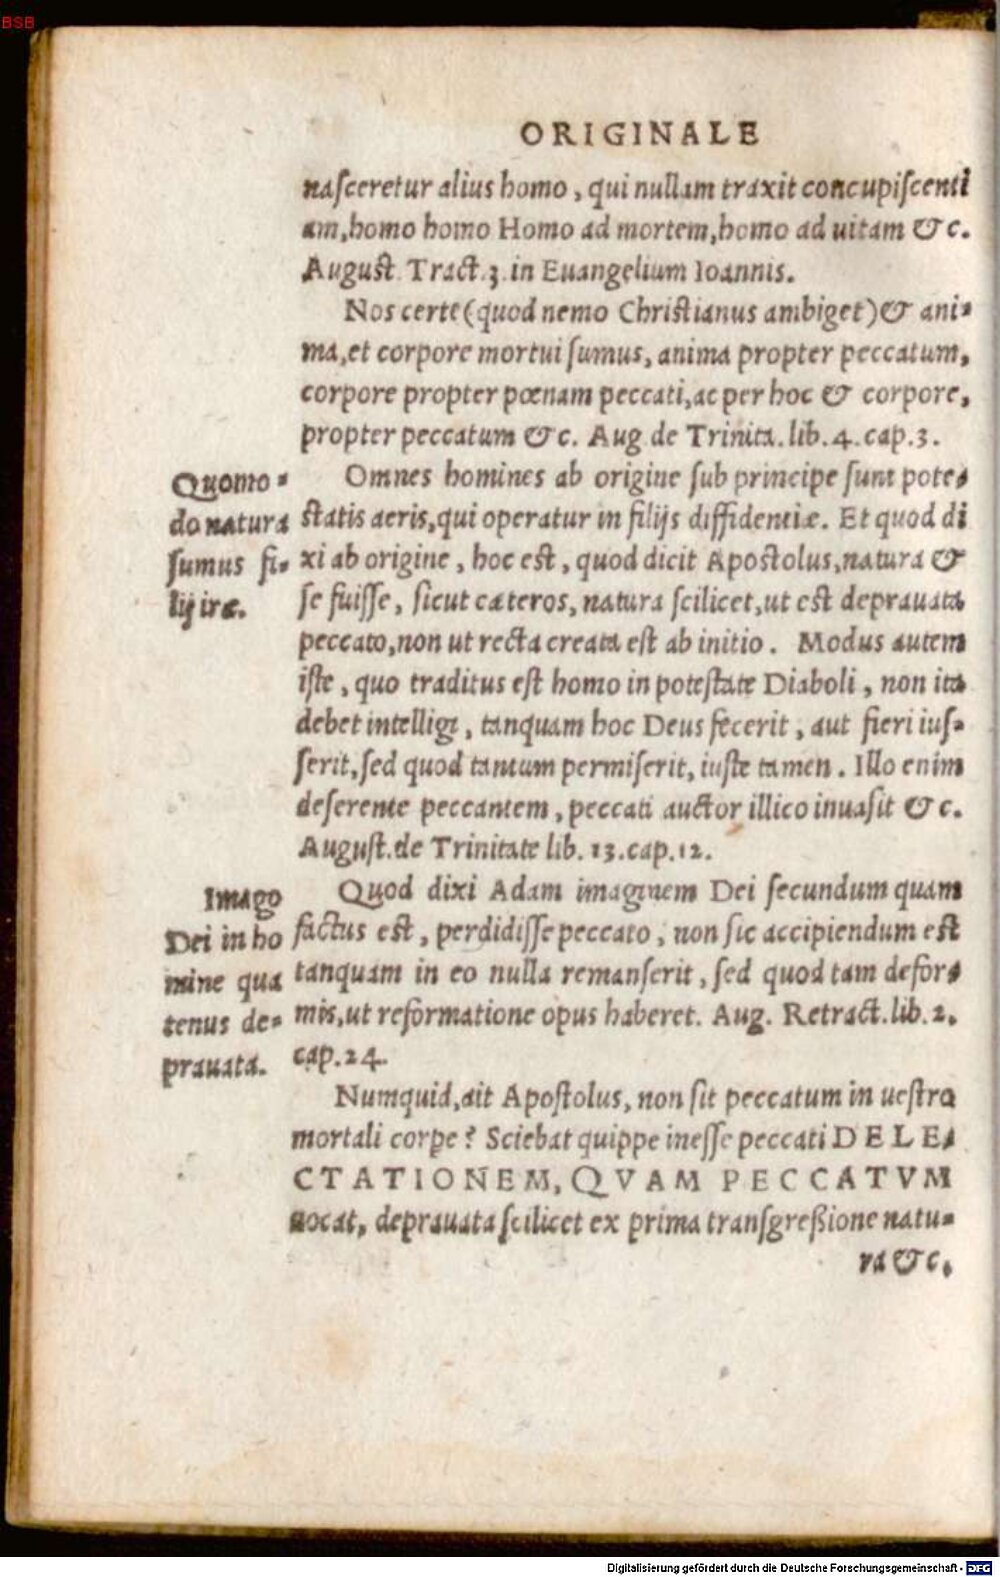 BSB
ORIGINALE
nasceretur alius homo, qui nullam traxit concupiscenti
am, homo homo Homo ad mortem, homo ad uitam & c.
August. Tract. 3. in Euangelium Ioannis.
Nos certe (quod nemo Christianus ambiget) & ani-
ma, et corpore mortui sumus, anima propter peccatum,
corpore propter pœnam peccati, ac per hoc & corpore,
propter peccatum & c. Aug. de Trinita. lib. 4. cap. 3.
Quomo-
do natura
sumus fi-
lij iræ.
Omnes homines ab origine sub principe sunt pote-
statis aeris, qui operatur in filijs diffidentiæ. Et quod di
xi ab origine, hoc est, quod dicit Apostolus, natura &
se fuisse, sicut cæteros, natura scilicet, ut est deprauata
peccato, non ut recta creata est ab initio. Modus autem
iste, quo traditus est homo in potestate Diaboli, non ita
debet intelligi, tanquam hoc Deus fecerit, aut fieri ius-
serit, sed quod tantum permiserit, iuste tamen. Illo enim
deserente peccantem, peccati auctor illico inuasit & c.
August. de Trinitate lib. 13. cap. 12.
Imago
Dei in ho
mine qua
tenus de-
prauata.
Quod dixi Adam imaginem Dei secundum quam
factus est, perdidisse peccato, non sic accipiendum est
tanquam in eo nulla remanserit, sed quod tam defor-
mis, ut reformatione opus haberet. Aug. Retract. lib. 2.
cap. 24.
Numquid, ait Apostolus, non sit peccatum in uestro
mortali corpe? Sciebat quippe inesse peccati DELE-
CTATIONEM, QVAM PECCATVM
uocat, deprauata scilicet ex prima transgreßione natu-
ra & c.
Digitalisierung gefördert durch die Deutsche Forschungsgemeinschaft - DFG